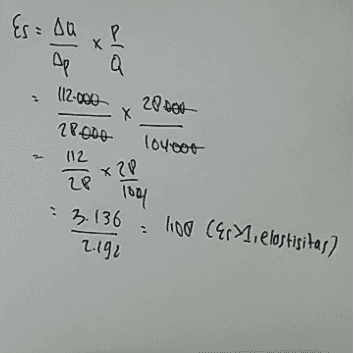 Es = ΔQ/Δp x P/Q
= 112.000/28.000 x 28.000/104.000
= 112/28 x 28/104
= 3.136/2.192 = 1,00 (Es>1, elastisitas)